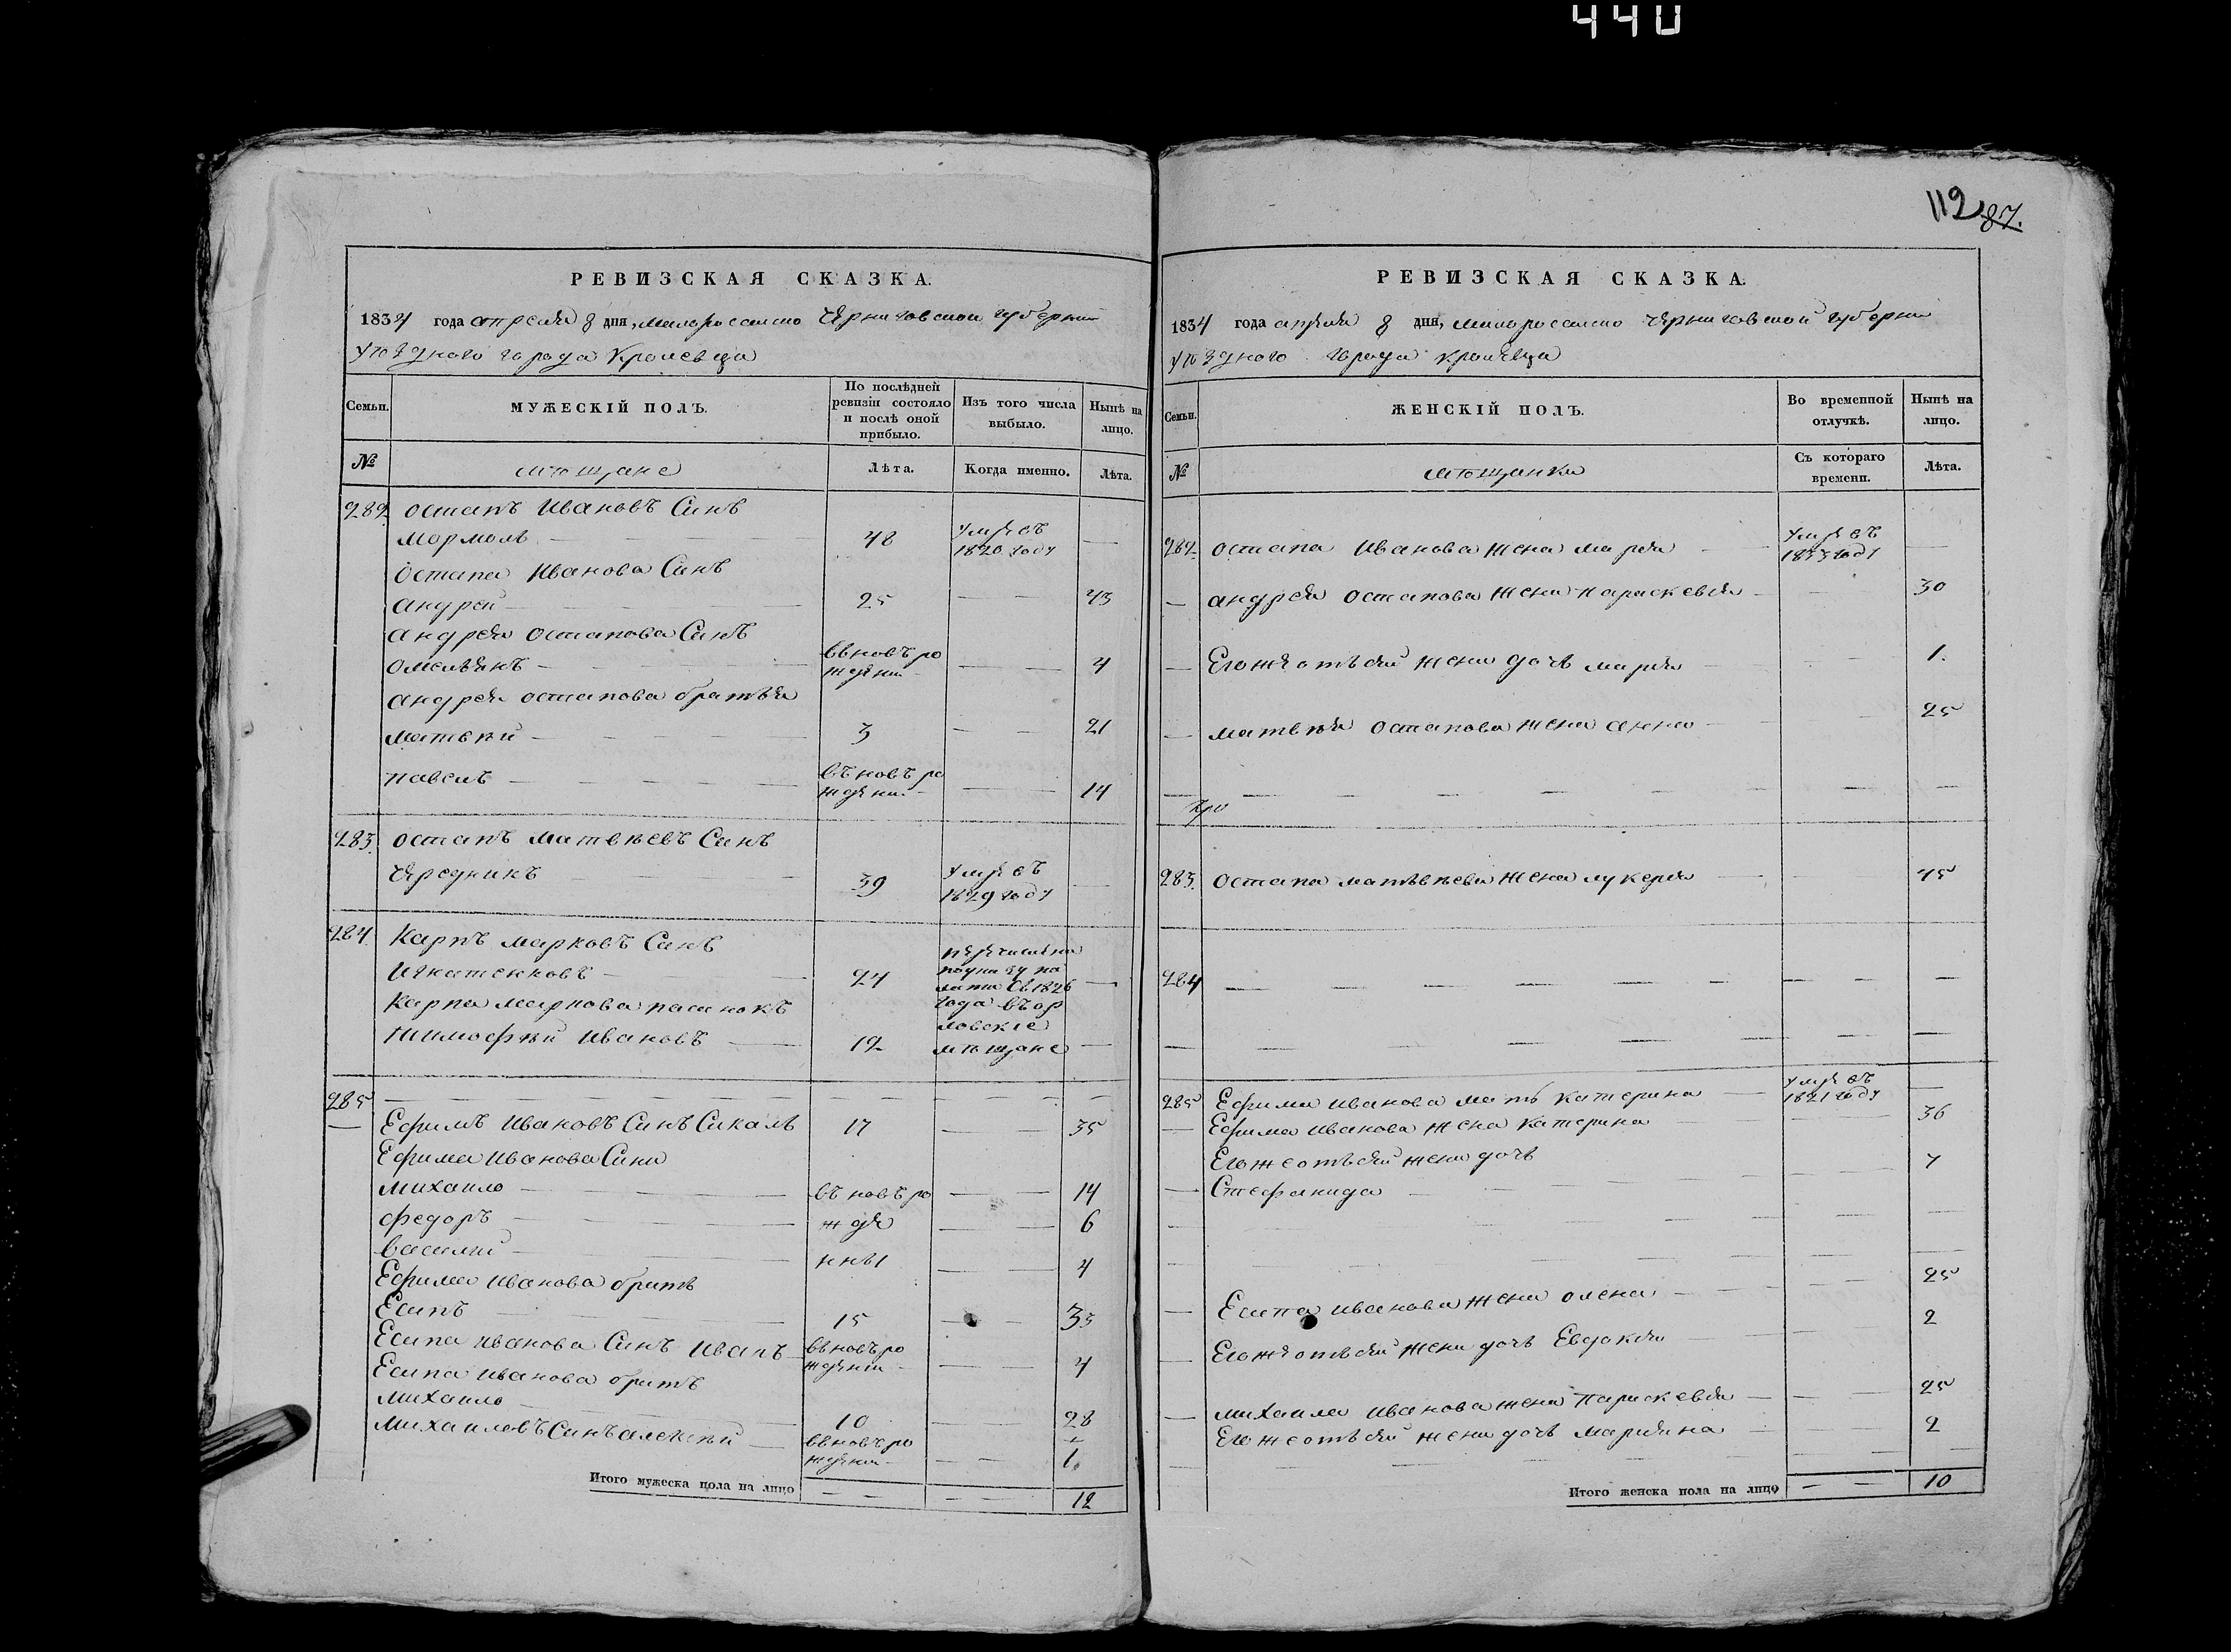 440
112 87.
РЕВИЗСКАЯ СКАЗКА.
1834 года апреля 8 дня, малоросейско Черниговской губернии
уѣзднаго города Кролевца
Семьи. МУЖЕСКІЙ ПОЛЪ. По послѣдней ревизіи состояло и послѣ оной прибыло. Изъ того числа выбыло. Нынѣ на лицо.
№ мѣщане Лѣта. Когда именно. Лѣта.
282 остапъ Ивановъ Синъ
мормоль — 48 умре въ 1820 году —
остапа Иванова Синъ
андрей — 25 — — 43
андрея остапова Синъ
омельянъ — ввновъ рождении — — 4
андрея остапова братья
матвѣй — 3 — — 21
павелъ — въ новъ рождении — — 14
283. остапъ матвѣевъ Синъ
Чередникъ — 39 умре въ 1829 году —
284. Карпъ марковъ Синъ
Игнатенковъ — 24 —
Карпа маркова пасинокъ
тимофѣй Ивановъ — 12 —
перечислены по указу палати съ 1826 года въ орловские мѣщане
285 — — — — — —
— Ефимъ Ивановъ Синъ Сикаль 17 — — 35
Ефима Иванова Сини
михаило — въ новъ ро — — 14
федоръ — жде — — 6
василий — нны — — 4
Ефима Иванова братъ
Есипъ — 15 — — 33
Есипа Иванова Синъ Иванъ ввновъ рождении — — 4
Есипа Иванова братъ
михаило — 10 — — 28
михаиловъ Синъ алексѣй — ввновъ рождении — — 1.
Итого мужеска пола на лицо — — — — 12
РЕВИЗСКАЯ СКАЗКА.
1834 года апреля 8 дня, малоросейско Черниговской губернии
уѣзднаго города кролевца
Семьи. ЖЕНСКІЙ ПОЛЪ. Во временной отлучкѣ. Нынѣ на лицо.
№ мѣщанки Съ котораго времени. Лѣта.
282. остапа Иванова жена марья — умре въ 1833 году —
— андрея остапова жена параскевія — — 30
— Егоже отъсей жени дочь марья — — 1.
— матвѣя остапова жена анна — — 25
— — — — — — — —
283. остапа матвѣева жена лукерья — — 45
284 — — — — — — — —
— — — — — — — —
285 Ефима Иванова мать катерина — умре въ 1821 году —
— Ефима Иванова жена катерина — — 36
Егоже отъсей жени дочь
— Стефанида — — 7
— — — — —
— — — — —
— Есипа Иванова жена олена — — 25
— Егоже отъсей жени дочь Евдокия — — 2
— михаила Иванова жена параскевія — — 25
Егоже отъсей жени дочь марьяна — — 2
— — — — —
Итого женска пола на лицо — — 10